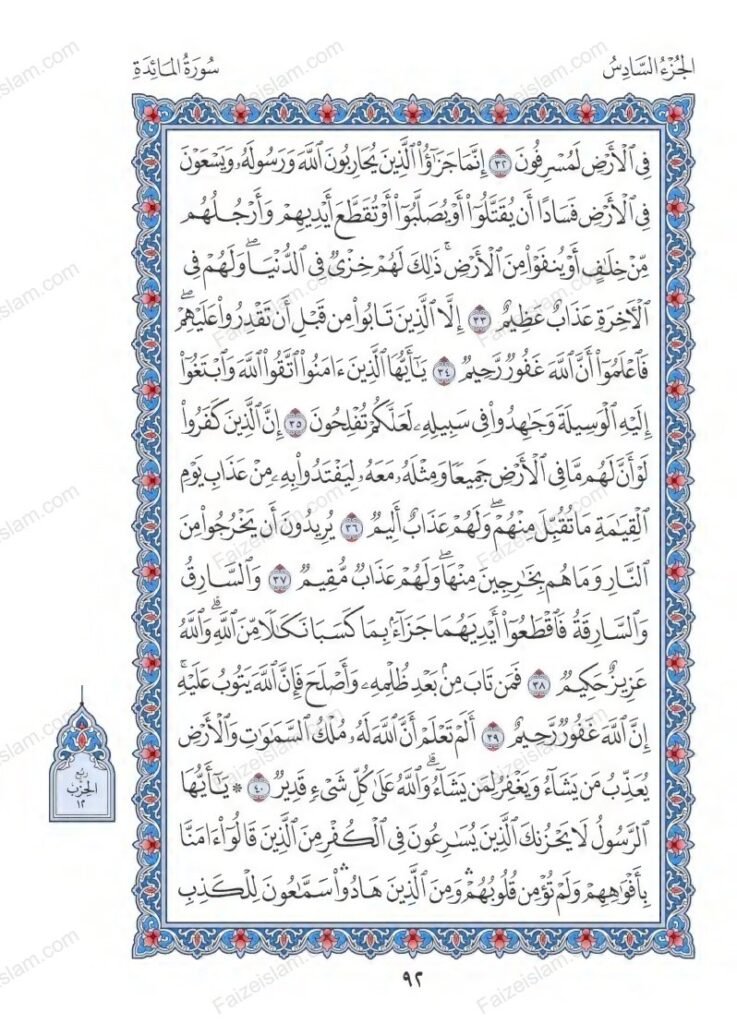 الجُزْءُ السَّادِسُ
سُورَةُ المَائِدَةِ
فِي ٱلۡأَرۡضِ لَمُسۡرِفُونَ ٣٢ إِنَّمَا جَزَٰٓؤُاْ ٱلَّذِينَ يُحَارِبُونَ ٱللَّهَ وَرَسُولَهُۥ وَيَسۡعَوۡنَ
فِي ٱلۡأَرۡضِ فَسَادًا أَن يُقَتَّلُوٓاْ أَوۡ يُصَلَّبُوٓاْ أَوۡ تُقَطَّعَ أَيۡدِيهِمۡ وَأَرۡجُلُهُم
مِّنۡ خِلَٰفٍ أَوۡ يُنفَوۡاْ مِنَ ٱلۡأَرۡضِۚ ذَٰلِكَ لَهُمۡ خِزۡيٞ فِي ٱلدُّنۡيَاۖ وَلَهُمۡ فِي
ٱلۡأٓخِرَةِ عَذَابٌ عَظِيمٌ ٣٣ إِلَّا ٱلَّذِينَ تَابُواْ مِن قَبۡلِ أَن تَقۡدِرُواْ عَلَيۡهِمۡۖ
فَٱعۡلَمُوٓاْ أَنَّ ٱللَّهَ غَفُورٞ رَّحِيمٞ ٣٤ يَٰٓأَيُّهَا ٱلَّذِينَ ءَامَنُواْ ٱتَّقُواْ ٱللَّهَ وَٱبۡتَغُوٓاْ
إِلَيۡهِ ٱلۡوَسِيلَةَ وَجَٰهِدُواْ فِي سَبِيلِهِۦ لَعَلَّكُمۡ تُفۡلِحُونَ ٣٥ إِنَّ ٱلَّذِينَ كَفَرُواْ
لَوۡ أَنَّ لَهُم مَّا فِي ٱلۡأَرۡضِ جَمِيعٗا وَمِثۡلَهُۥ مَعَهُۥ لِيَفۡتَدُواْ بِهِۦ مِنۡ عَذَابِ يَوۡمِ
ٱلۡقِيَٰمَةِ مَا تُقُبِّلَ مِنۡهُمۡۖ وَلَهُمۡ عَذَابٌ أَلِيمٞ ٣٦ يُرِيدُونَ أَن يَخۡرُجُواْ مِنَ
ٱلنَّارِ وَمَا هُم بِخَٰرِجِينَ مِنۡهَاۖ وَلَهُمۡ عَذَابٞ مُّقِيمٞ ٣٧ وَٱلسَّارِقُ
وَٱلسَّارِقَةُ فَٱقۡطَعُوٓاْ أَيۡدِيَهُمَا جَزَآءَۢ بِمَا كَسَبَا نَكَٰلٗا مِّنَ ٱللَّهِۗ وَٱللَّهُ
عَزِيزٌ حَكِيمٞ ٣٨ فَمَن تَابَ مِنۢ بَعۡدِ ظُلۡمِهِۦ وَأَصۡلَحَ فَإِنَّ ٱللَّهَ يَتُوبُ عَلَيۡهِۚ
إِنَّ ٱللَّهَ غَفُورٞ رَّحِيمٌ ٣٩ أَلَمۡ تَعۡلَمۡ أَنَّ ٱللَّهَ لَهُۥ مُلۡكُ ٱلسَّمَٰوَٰتِ وَٱلۡأَرۡضِ
يُعَذِّبُ مَن يَشَآءُ وَيَغۡفِرُ لِمَن يَشَآءُۗ وَٱللَّهُ عَلَىٰ كُلِّ شَيۡءٖ قَدِيرٞ ٤٠ ۞ يَٰٓأَيُّهَا
ٱلرَّسُولُ لَا يَحۡزُنكَ ٱلَّذِينَ يُسَٰرِعُونَ فِي ٱلۡكُفۡرِ مِنَ ٱلَّذِينَ قَالُوٓاْ ءَامَنَّا
بِأَفۡوَٰهِهِمۡ وَلَمۡ تُؤۡمِن قُلُوبُهُمۡۛ وَمِنَ ٱلَّذِينَ هَادُواْۛ سَمَّٰعُونَ لِلۡكَذِبِ
ربع
الحِزْب
١٢
٩٢
Faizeislam.com